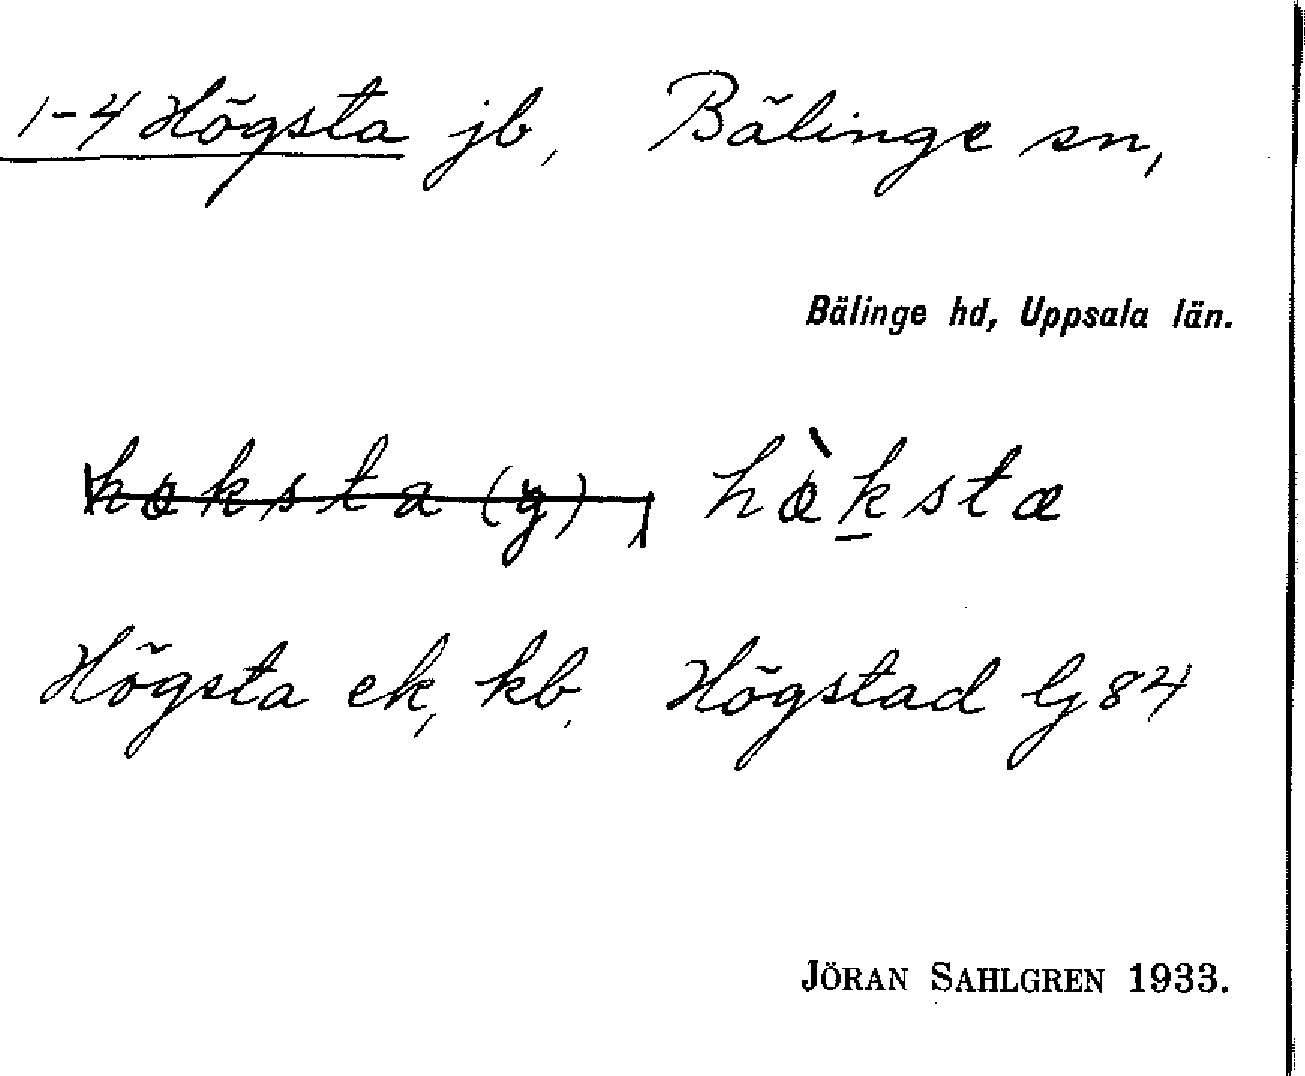 1-4 Högsta jb, Bälinge sn,
Bälinge hd, Uppsala län.
høksta (g), hø̀k̲sta
Högsta ek, kb. Högstad Gj 84
JÖRAN SAHLGREN 1933.